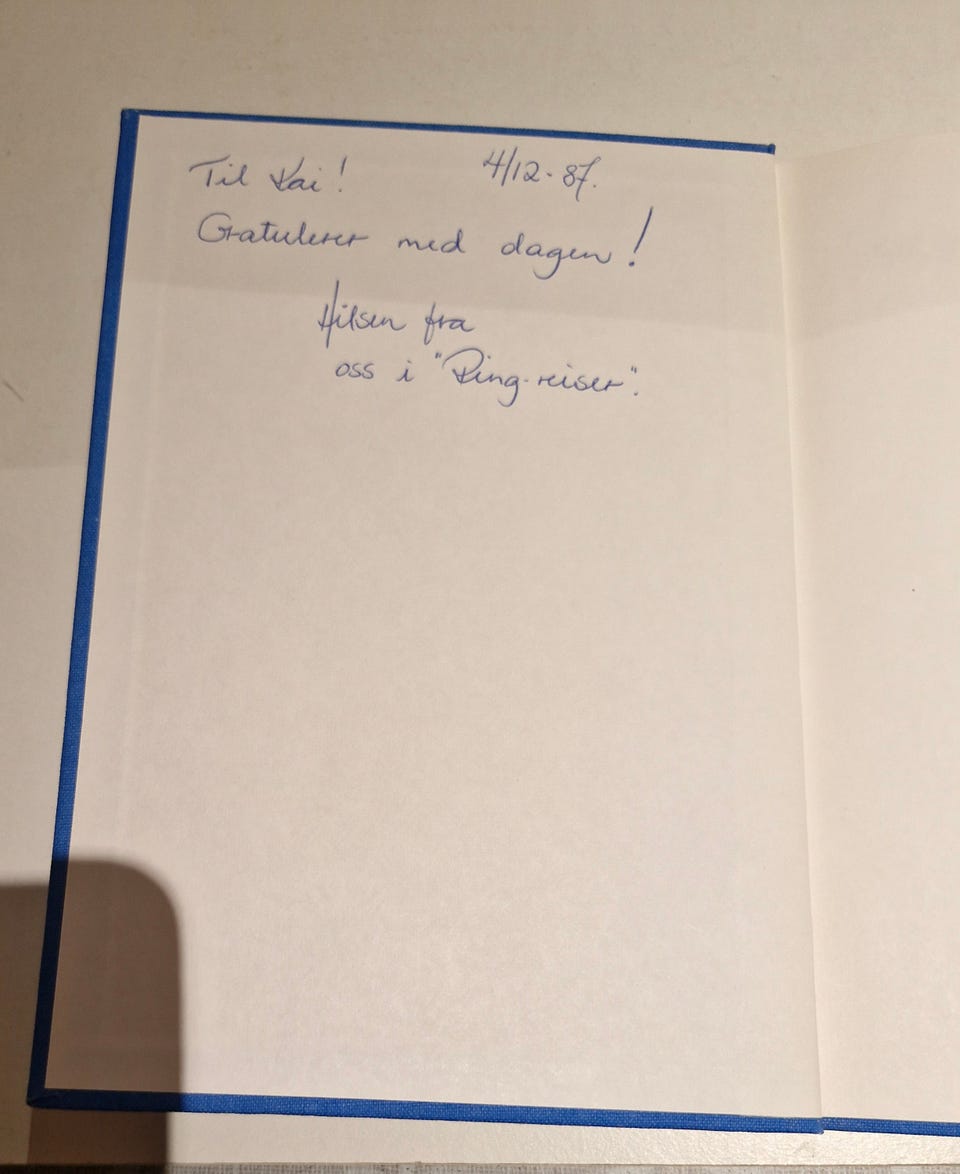 Til Kai! 4/12-87.
Gratulerer med dagen!
Hilsen fra
oss i "Ring-reiser".